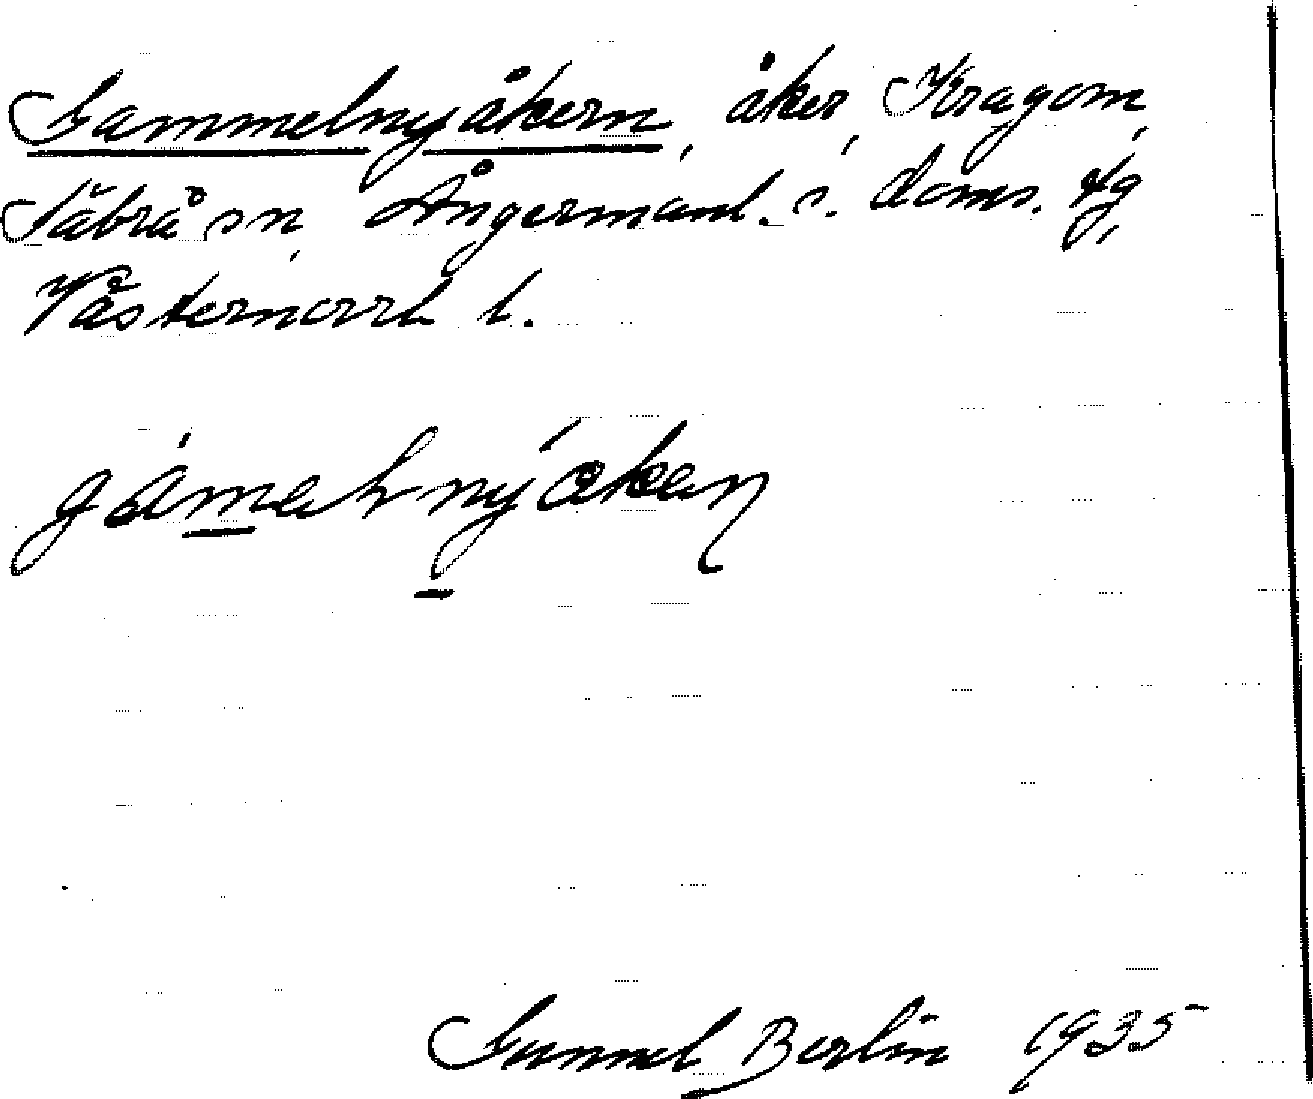 Gammelnyåkern, åker, Kragom,
Säbrå sn, Ångermanl. s. doms. tg,
Västernorrl l.
gámelnýåken
Gunnel Berlin 1935